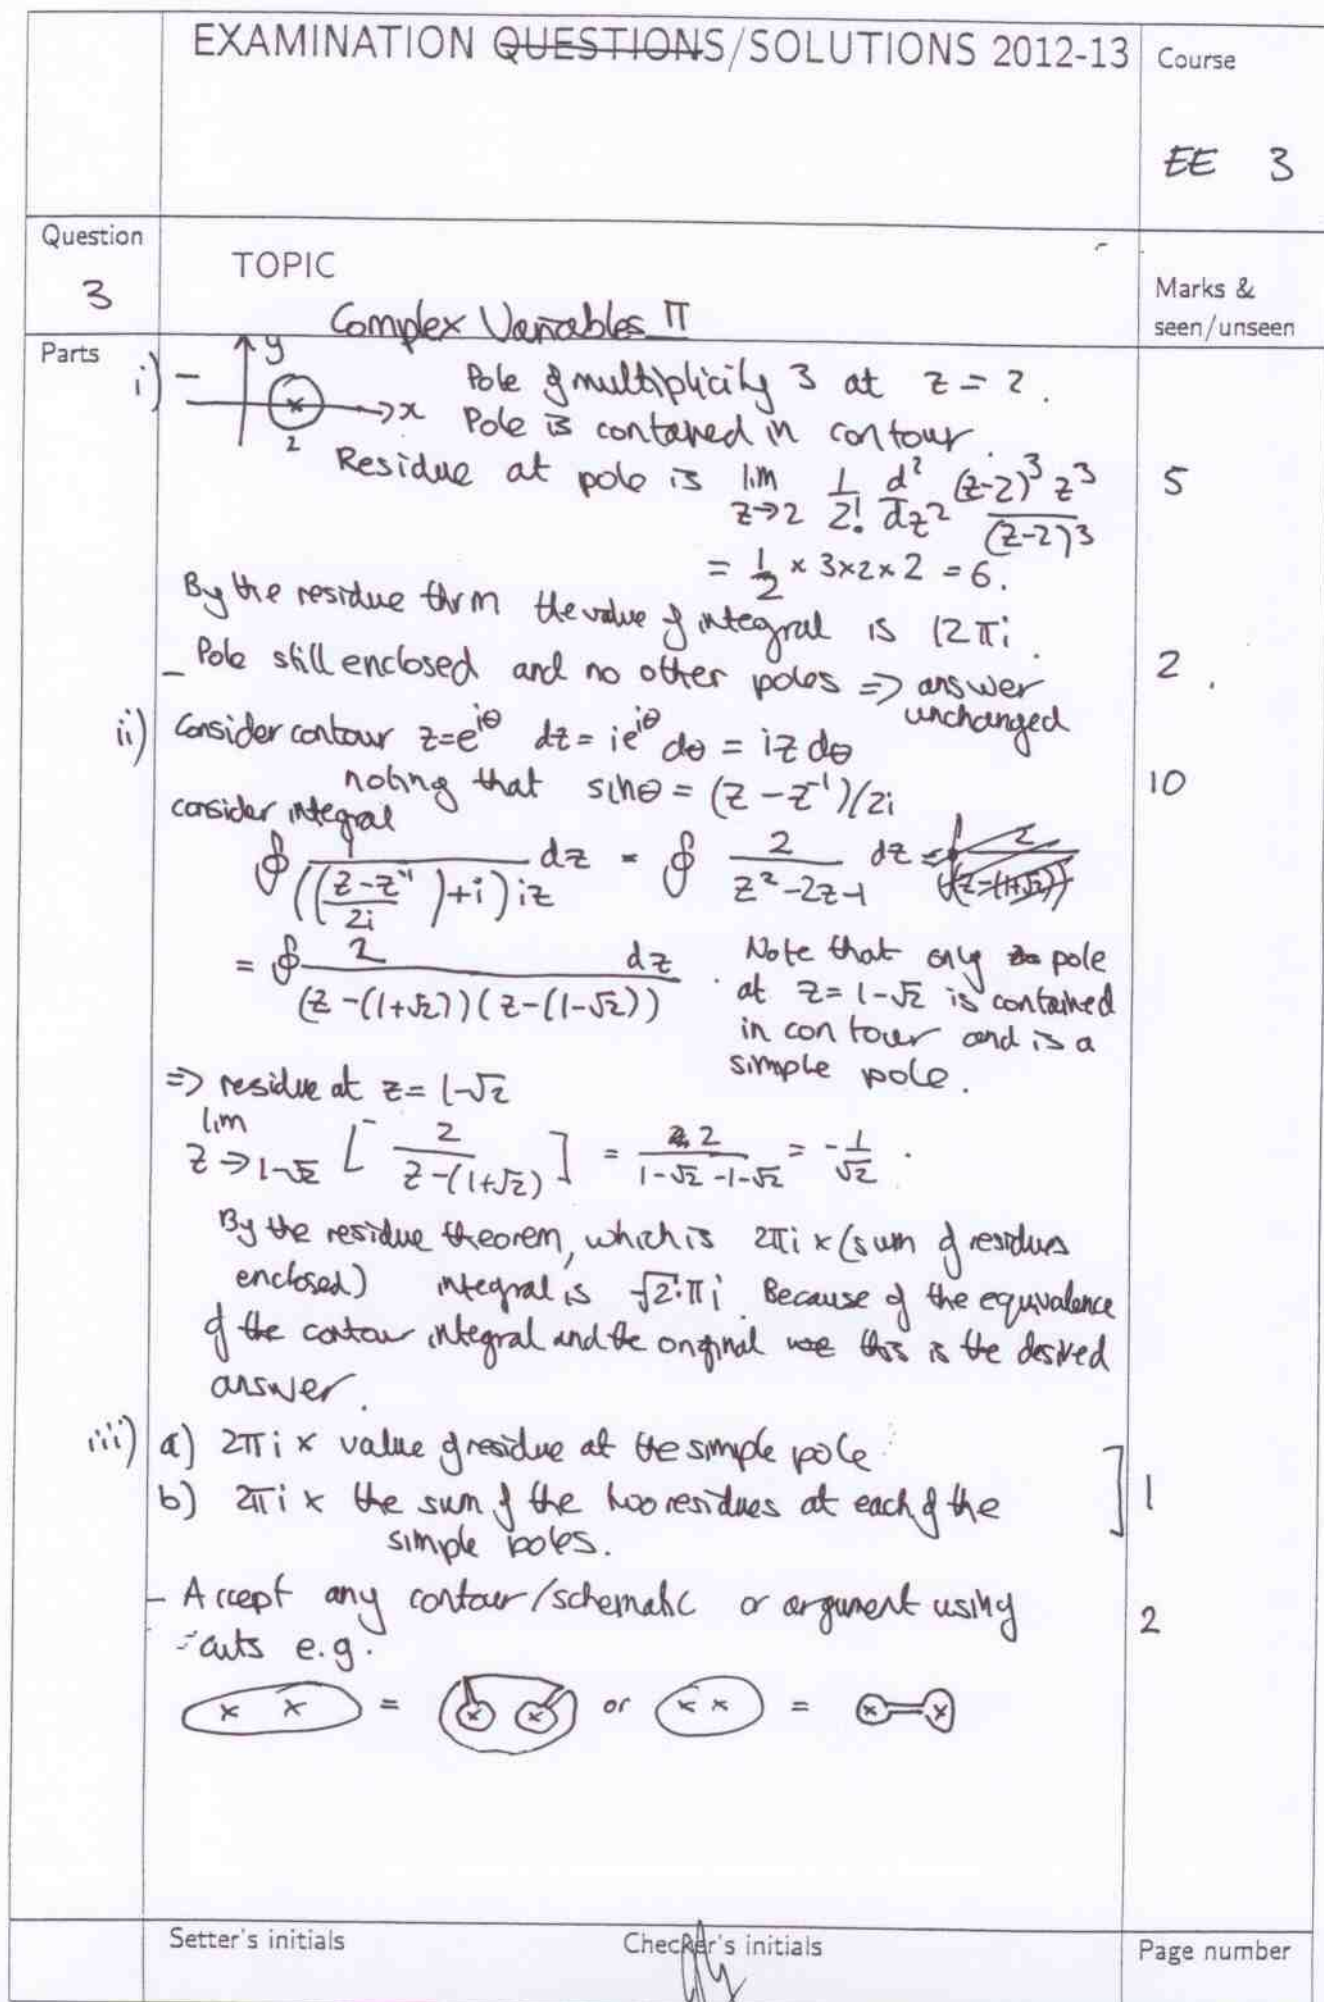 EXAMINATION QUESTIONS/SOLUTIONS 2012-13
Course
EE 3
Question
3
TOPIC
Complex Variables II
Marks &
seen/unseen
Parts
i) - y x 2
Pole of multiplicity 3 at z = 2.
Pole is contained in contour.
Residue at pole is lim z→2 1/2! d²/dz² (z-2)³ z³/(z-2)³
5
= 1/2 × 3×2×2 = 6.
By the residue thrm the value of integral is 12πi.
- Pole still enclosed and no other poles => answer
unchanged
2.
ii) Consider contour z=e^{iθ} dz = ie^{iθ} dθ = iz dθ
noting that sinθ = (z - z⁻¹)/2i
10
consider integral
∮ 1/(((z - z⁻¹)/2i) + i) iz dz = ∮ 2/(z² - 2z - 1) dz =
= ∮ 2 dz/((z - (1+√2))(z - (1-√2))).
Note that only pole
at z = 1-√2 is contained
in contour and is a
simple pole.
=> residue at z = 1-√2
lim z→1-√2 [2/(z - (1+√2))] = 2/(1-√2 -1-√2) = -1/√2.
By the residue theorem, which is 2πi × (sum of residues
enclosed) integral is -√2·πi. Because of the equivalence
of the contour integral and the original this is the desired
answer.
iii) a) 2πi × value of residue at the simple pole
b) 2πi × the sum of the two residues at each of the
simple poles.
1
- Accept any contour/schematic or argument using
cuts e.g.
2
x x = x x or x x = x x
Setter's initials
Checker's initials
Page number